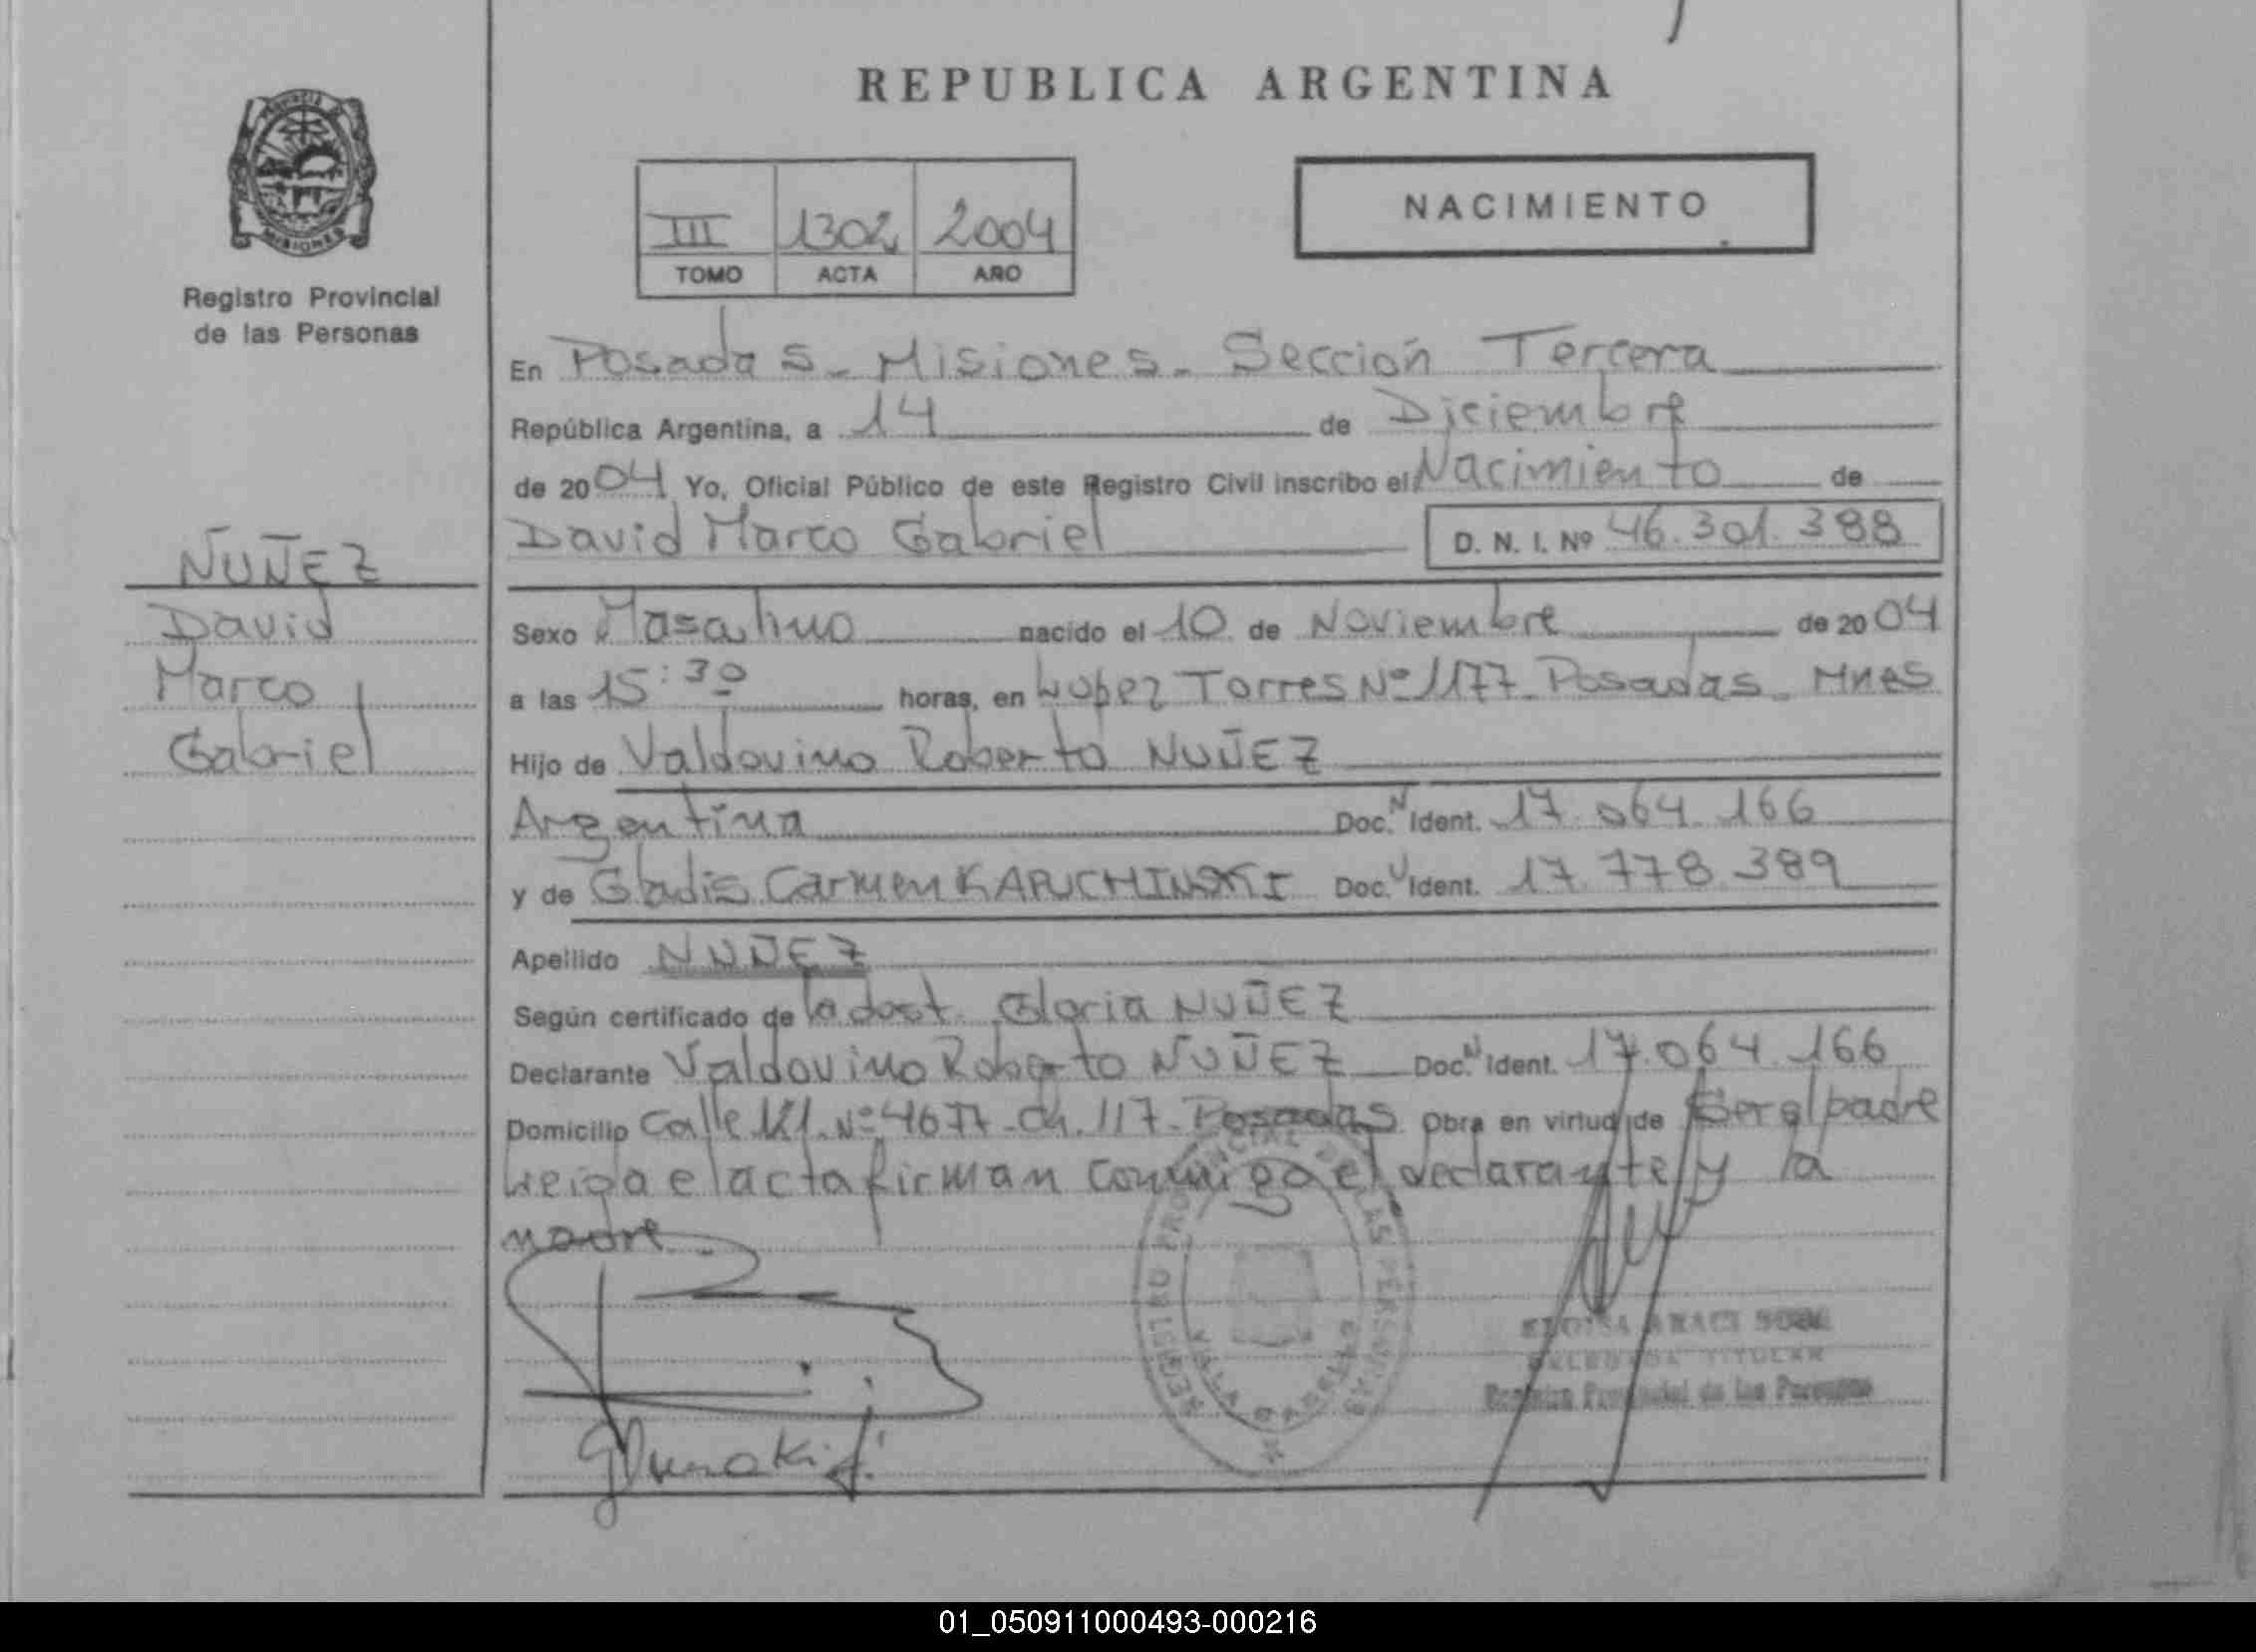 REPUBLICA ARGENTINA
NACIMIENTO
III 1302 2004
TOMO ACTA AÑO
PROVINCIA DE MISIONES
Registro Provincial
de las Personas
En Posadas - Misiones - Sección Tercera
República Argentina, a 14 de Diciembre
de 2004 Yo, Oficial Público de este Registro Civil inscribo el Nacimiento de
David Marco Gabriel D. N. I. Nº 46.301.388
NUÑEZ
David
Marco
Gabriel
Sexo Masculino nacido el 10 de Noviembre de 2004
a las 15:30 horas, en Lopez Torres Nº 1177 - Posadas - Mnes
Hijo de Valdovino Roberto NUÑEZ
Argentina Doc. N Ident. 17.064.166
y de Gladis Carmen Doc. Ident. 17.778.389
Apellido NUÑEZ
Según certificado de la obst. Gloria NUÑEZ
Declarante Valdovino Roberto NUÑEZ Doc. N Ident. 17.064.166
Domicilio Calle Nº - Ch. 117 - Posadas Obra en virtud de Ser el padre
Leida el acta firman conmigo el declarante y la
madre.
REGISTRO PROVINCIAL DE LAS PERSONAS
DELEGADA TITULAR
Registro Provincial de las Personas
01_050911000493-000216